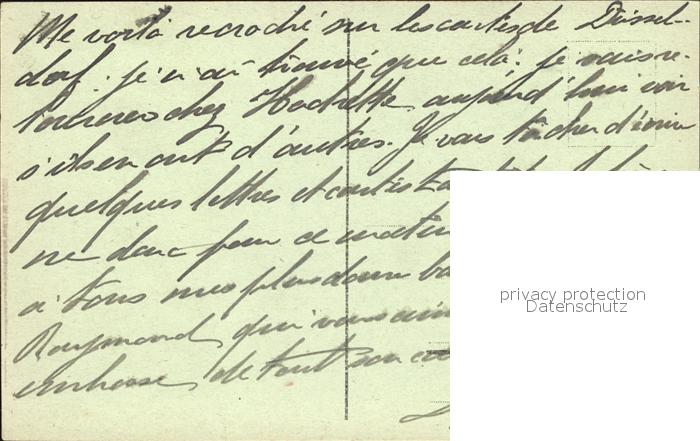 Me voilà recroché sur les cartes de Düssel-
dorf. je n'ai trouvé que cela. je vais re-
tourner chez Hachette aujourd'hui voir
s'ils en ont d'autres. Je vais tâcher d'écrire
quelques lettres et cartes
ne donc pour ce matin
à tous mes plus doux ba
Raymond qui vous aim
embrasse de tout son cœ
privacy protection
Datenschutz